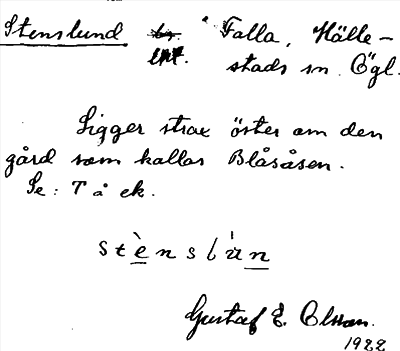 Stenslund lht. Falla, Hälle-
stads sn. Ögl.
Ligger strax öster om den
gård som kallas Blåsåsen.
Se: Tå ek.
stènslún
Gustaf E. Olsson.
1922